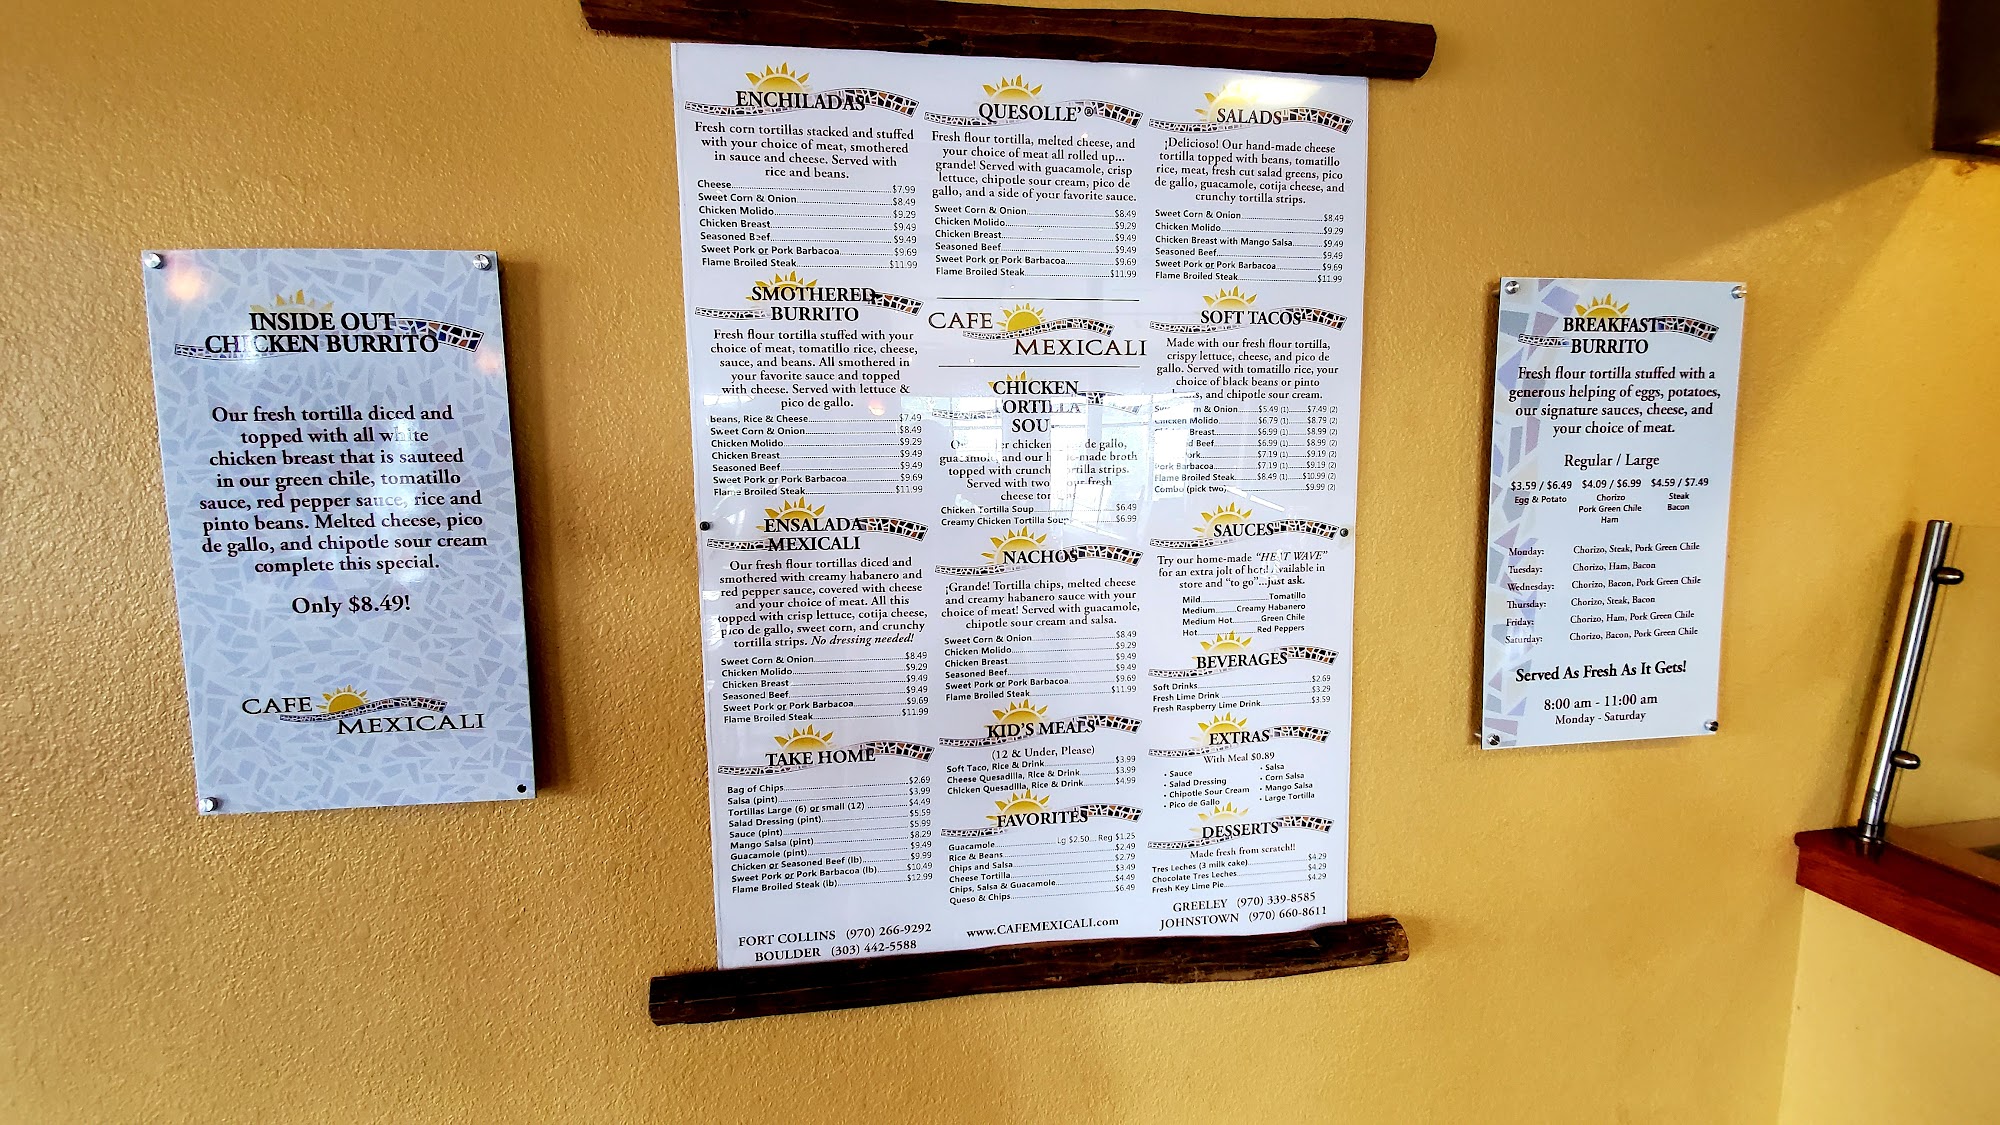 INSIDE OUT
CHICKEN BURRITO
Our fresh tortilla diced and
topped with all white
chicken breast that is sauteed
in our green chile, tomatillo
sauce, red pepper sauce, rice and
pinto beans. Melted cheese, pico
de gallo, and chipotle sour cream
complete this special.
Only $8.49!
CAFE
MEXICALI
ENCHILADAS
Fresh corn tortillas stacked and stuffed
with your choice of meat, smothered
in sauce and cheese. Served with
rice and beans.
Cheese $7.99
Sweet Corn & Onion $8.49
Chicken Molido $9.29
Chicken Breast $9.49
Seasoned Beef $9.49
Sweet Pork or Pork Barbacoa $9.69
Flame Broiled Steak $11.99
SMOTHERED
BURRITO
Fresh flour tortilla stuffed with your
choice of meat, tomatillo rice, cheese,
sauce, and beans. All smothered in
your favorite sauce and topped
with cheese. Served with lettuce &
pico de gallo.
beans, Rice & Cheese $7.49
Sweet Corn & Onion $8.49
Chicken Molido $9.29
Chicken Breast $9.49
Seasoned Beef $9.49
Sweet Pork or Pork Barbacoa $9.69
Flame Broiled Steak $11.99
ENSALADA
MEXICALI
Our fresh flour tortillas diced and
smothered with creamy habanero and
red pepper sauce, covered with cheese
and your choice of meat. All this
topped with crisp lettuce, cotija cheese,
pico de gallo, sweet corn, and crunchy
tortilla strips. No dressing needed!
Sweet Corn & Onion $8.49
Chicken Molido $9.29
Chicken Breast $9.49
Seasoned Beef $9.49
Sweet Pork or Pork Barbacoa $9.69
Flame Broiled Steak $11.99
TAKE HOME
Bag of Chips $2.69
Salsa (pint) $3.99
Tortillas Large (6) or small (12) $4.49
Salad Dressing (pint) $5.59
Sauce (pint) $5.99
Mango Salsa (pint) $8.29
Guacamole (pint) $9.49
Chicken or Seasoned Beef (lb) $9.99
Sweet Pork or Pork Barbacoa (lb) $10.49
Flame Broiled Steak (lb) $12.99
FORT COLLINS (970) 266-9292
BOULDER (303) 442-5588
QUESOLLE'®
Fresh flour tortilla, melted cheese, and
your choice of meat all rolled up...
grande! Served with guacamole, crisp
lettuce, chipotle sour cream, pico de
gallo, and a side of your favorite sauce.
Sweet Corn & Onion $8.49
Chicken Molido $9.29
Chicken Breast $9.49
Seasoned Beef $9.49
Sweet Pork or Pork Barbacoa $9.69
Flame Broiled Steak $11.99
CAFE
MEXICALI
CHICKEN
TORTILLA
SOU
chicken de gallo,
and our broth
topped with crunch
Served with two fresh
cheese
Chicken Tortilla Soup $6.49
Creamy Chicken Tortilla Soup $6.99
NACHOS
¡Grande! Tortilla chips, melted cheese
and creamy habanero sauce with your
choice of meat! Served with guacamole,
chipotle sour cream and salsa.
Sweet Corn & Onion $8.49
Chicken Molido $9.29
Chicken Breast $9.49
Seasoned Beef $9.49
Sweet Pork or Pork Barbacoa $9.69
Flame Broiled Steak $11.99
KID'S MEALS
(12 & Under, Please)
Soft Taco, Rice & Drink $3.99
Cheese Quesadilla, Rice & Drink $3.99
Chicken Quesadilla, Rice & Drink $4.99
FAVORITES
Guacamole Lg $2.50... Reg $1.25
Rice & Beans $2.49
Chips and Salsa $2.79
Cheese Tortilla $3.49
Chips, Salsa & Guacamole $4.49
Queso & Chips $6.49
www.CAFEMEXICALI.com
SALADS
¡Delicioso! Our hand-made cheese
tortilla topped with beans, tomatillo
rice, meat, fresh cut salad greens, pico
de gallo, guacamole, cotija cheese, and
crunchy tortilla strips.
Sweet Corn & Onion $8.49
Chicken Molido $9.29
Chicken Breast with Mango Salsa $9.49
Seasoned Beef $9.49
Sweet Pork or Pork Barbacoa $9.69
Flame Broiled Steak $11.99
SOFT TACOS
Made with our fresh flour tortilla,
crispy lettuce, cheese, and pico de
gallo. Served with tomatillo rice, your
choice of black beans or pinto
and chipotle sour cream.
Corn & Onion $5.49 (1) $7.49 (2)
Chicken Molido $6.79 (1) $8.79 (2)
Breast $6.99 (1) $8.99 (2)
Beef $6.99 (1) $8.99 (2)
Pork $7.19 (1) $9.19 (2)
Pork Barbacoa $7.19 (1) $9.19 (2)
Flame Broiled Steak $8.49 (1) $10.99 (2)
Combo (pick two) $9.99 (2)
SAUCES
Try our home-made "HEAT WAVE"
for an extra jolt of hot! Available in
store and "to go"...just ask.
Mild Tomatillo
Medium Creamy Habanero
Medium Hot Green Chile
Hot Red Peppers
BEVERAGES
Soft Drinks $2.69
Fresh Lime Drink $3.29
Fresh Raspberry Lime Drink $3.59
EXTRAS
With Meal $0.89
• Sauce
• Salad Dressing
• Chipotle Sour Cream
• Pico de Gallo
• Salsa
• Corn Salsa
• Mango Salsa
• Large Tortilla
DESSERTS
Made fresh from scratch!!
Tres Leches (3 milk cake) $4.29
Chocolate Tres Leches $4.29
Fresh Key Lime Pie $4.29
GREELEY (970) 339-8585
JOHNSTOWN (970) 660-8611
BREAKFAST
BURRITO
Fresh flour tortilla stuffed with a
generous helping of eggs, potatoes,
our signature sauces, cheese, and
your choice of meat.
Regular / Large
$3.59 / $6.49 $4.09 / $6.99 $4.59 / $7.49
Egg & Potato Chorizo Steak
Pork Green Chile Bacon
Ham
Monday: Chorizo, Steak, Pork Green Chile
Tuesday: Chorizo, Ham, Bacon
Wednesday: Chorizo, Bacon, Pork Green Chile
Thursday: Chorizo, Steak, Bacon
Friday: Chorizo, Ham, Pork Green Chile
Saturday: Chorizo, Bacon, Pork Green Chile
Served As Fresh As It Gets!
8:00 am - 11:00 am
Monday - Saturday